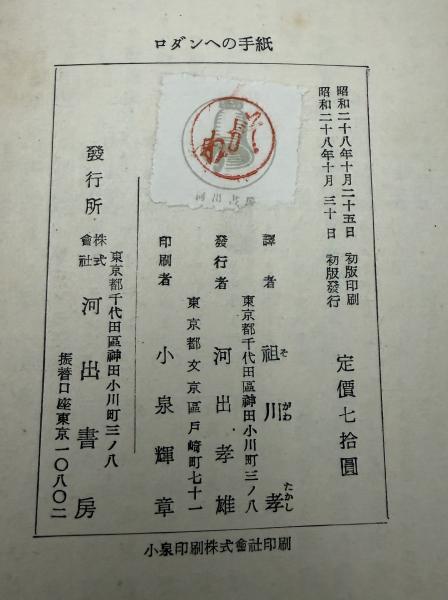 ロダンへの手紙
昭和二十八年十月二十五日 初版印刷
昭和二十八年十月三十日 初版發行
定價七拾圓
譯者 祖川孝
そ がわ たかし
東京都千代田區神田小川町三ノ八
發行者 河出孝雄
東京都文京區戸崎町七十一
印刷者 小泉輝章
發行所
東京都千代田區神田小川町三ノ八
株式會社 河出書房
振替口座東京一〇八〇二
小泉印刷株式會社印刷